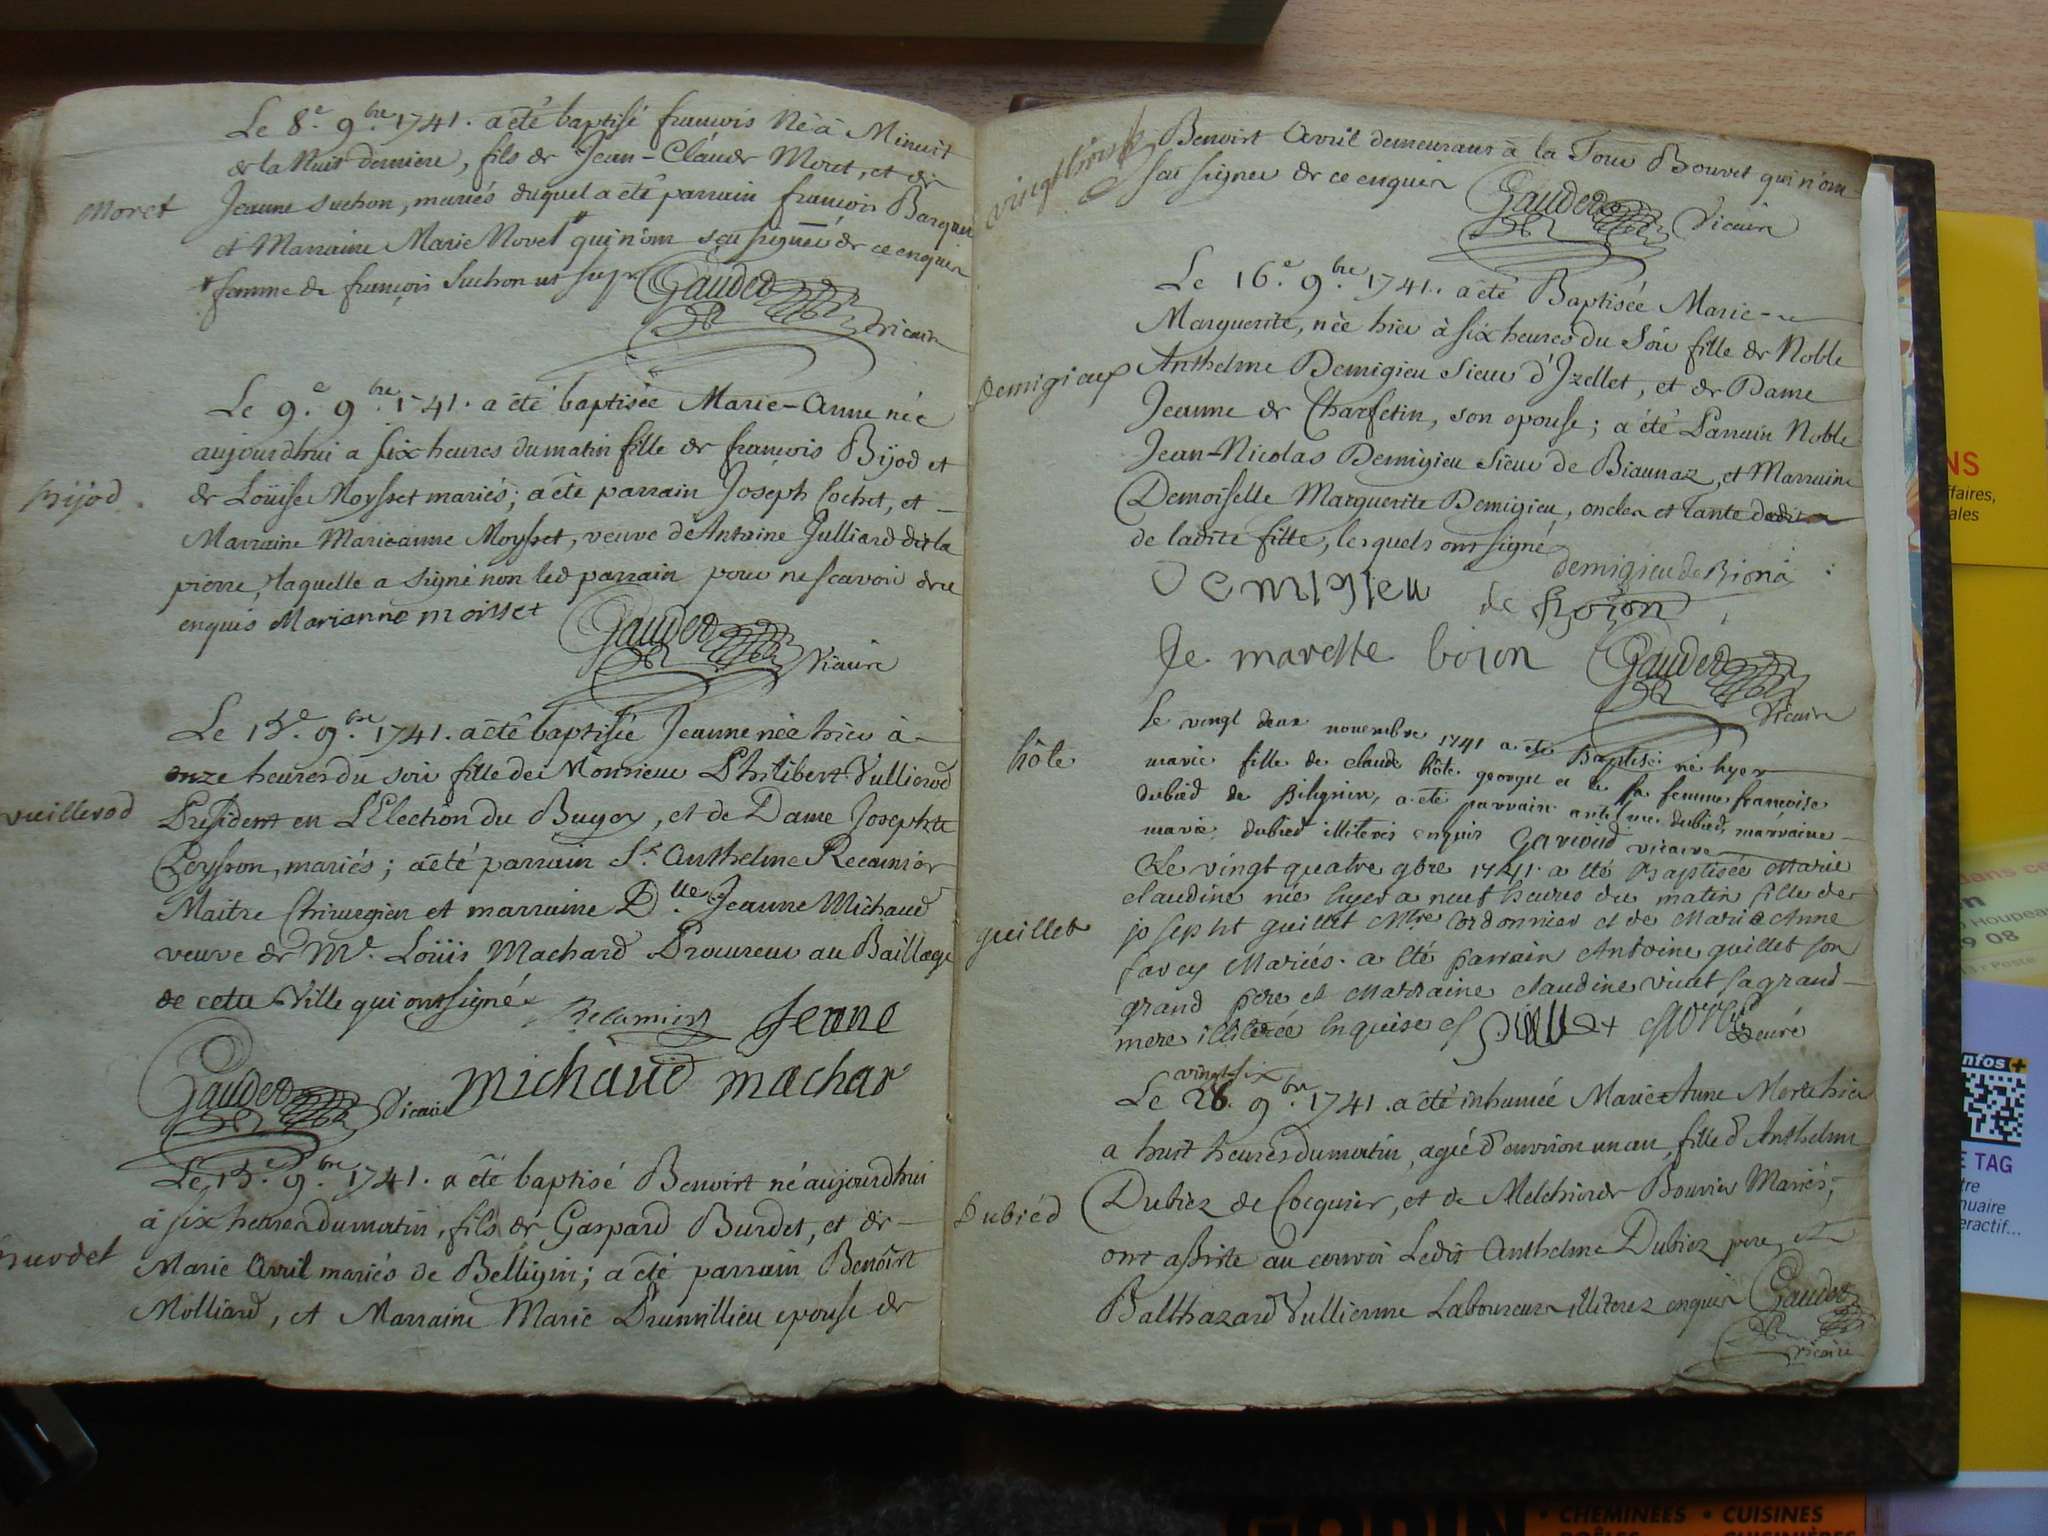 Le 8.e 9.bre 1741. a été baptisé françois né à Minuit
de la Nuit derniere, fils de Jean-Claude Moret, et de
Moret
Jeanne suchon, mariés duquel a été parrain françois
et Marraine Marie Novel* qui n'ont sçu signer de ce enquis
*femme de françois suchon ut supr Gaudet Vicaire
Le 9.e 9.bre 1741. a été baptisée Marie-Anne née
aujourdhui a six heures du matin fille de françois Bijod et
Bijod.
de Loüise Moysset mariés; a été parrain Joseph Cochet, et
Marraine Marieanne Moysset, veuve de Antoine Julliard dit la
pierre, laquelle a signé non led parrain pour ne scavoir de ce
enquis Marianne moisset Gaudet Vicaire
Le 13.e 9.bre 1741. a été baptisée Jeanne née hier à
onze heures du soir fille de Monsieur Philibert Vullierod
vuillerod
Président en L'Election du Bugey, et de Dame Josephte
Peysson, mariés; a été parrain Sr. Anthelme Recamier
Maitre Chirurgien et marraine D.lle Jeanne Michaud
veuve de Me. Loüis Machard Procureur au Baillage
de cette Ville qui ont signé Recamier Jenne
Gaudet Vicaire michaud machar
Le 13.e 9.bre 1741. a été baptisé Benoirt né aujourdhui
à six heures du matin, fils de Gaspard Burdet, et de
Burdet
Marie Avril mariés de Belligin; a été parrain Benoirt
Molliard, et Marraine Marie Drunvillieu epouse de
vingttrois
Benoirt Avril demeurans à la Tour Bouvet qui n'ont
sçu signer de ce enquis Gaudet Vicaire
Le 16.e 9.bre 1741. a été Baptisée Marie-
Marguerite, née hier à six heures du Soir fille de Noble
Demigieux
Anthelme Demigieu Sieur d'Izellet, et de Dame
Jeanne de Charfetin, son epouse; a été Parrain Noble
Jean-Nicolas Demigieu Sieur de Biaunaz, et Marraine
Demoiselle Marguerite Demigieu, oncle et Tante
de ladite fille, lesquels ont signé
demigieu de Biona
Demigieu de
Gaudet
Vicaire
le vingt deux novembre 1741 a été Baptisé né hyer
hôte
marie fille de claude hôte george et de sa femme francoise
dubied de Bilignin, a été parrain antelme dubied, marraine
marie dubied illiteris enquis Garcoud vicaire
Le vingt quatre 9bre 1741. a été Baptisée Marie
claudine née hyer a neuf heures du matin fille de
guillet
josepht guillet Mtre Cordonnier et de Marie Anne
favey Mariés. a été parrain Antoine guillet son
grand pere et Marraine claudine vuat sa grand
mere illiterée Enquise
Curé
vingt six
Le 28. 9.bre 1741. a été inhumée Marie-Anne Morte hier
a huit heures du matin, agée d'environ un an, fille d'Anthelme
Dubiéd
Dubiez de Cocquier, et de Melchiorde Bouvier Mariés;
ont assiste au convoi Ledit Anthelme Dubiez pere, et
Balthazard Vullierme Laboureurs illiterez enquis Gaudet
vicaire
NS
ffaires,
ales
dans ce
Houpeau
9 08
nfos+
E TAG
tre
nuaire
eractif...
GODIN • CHEMINÉES • CUISINES